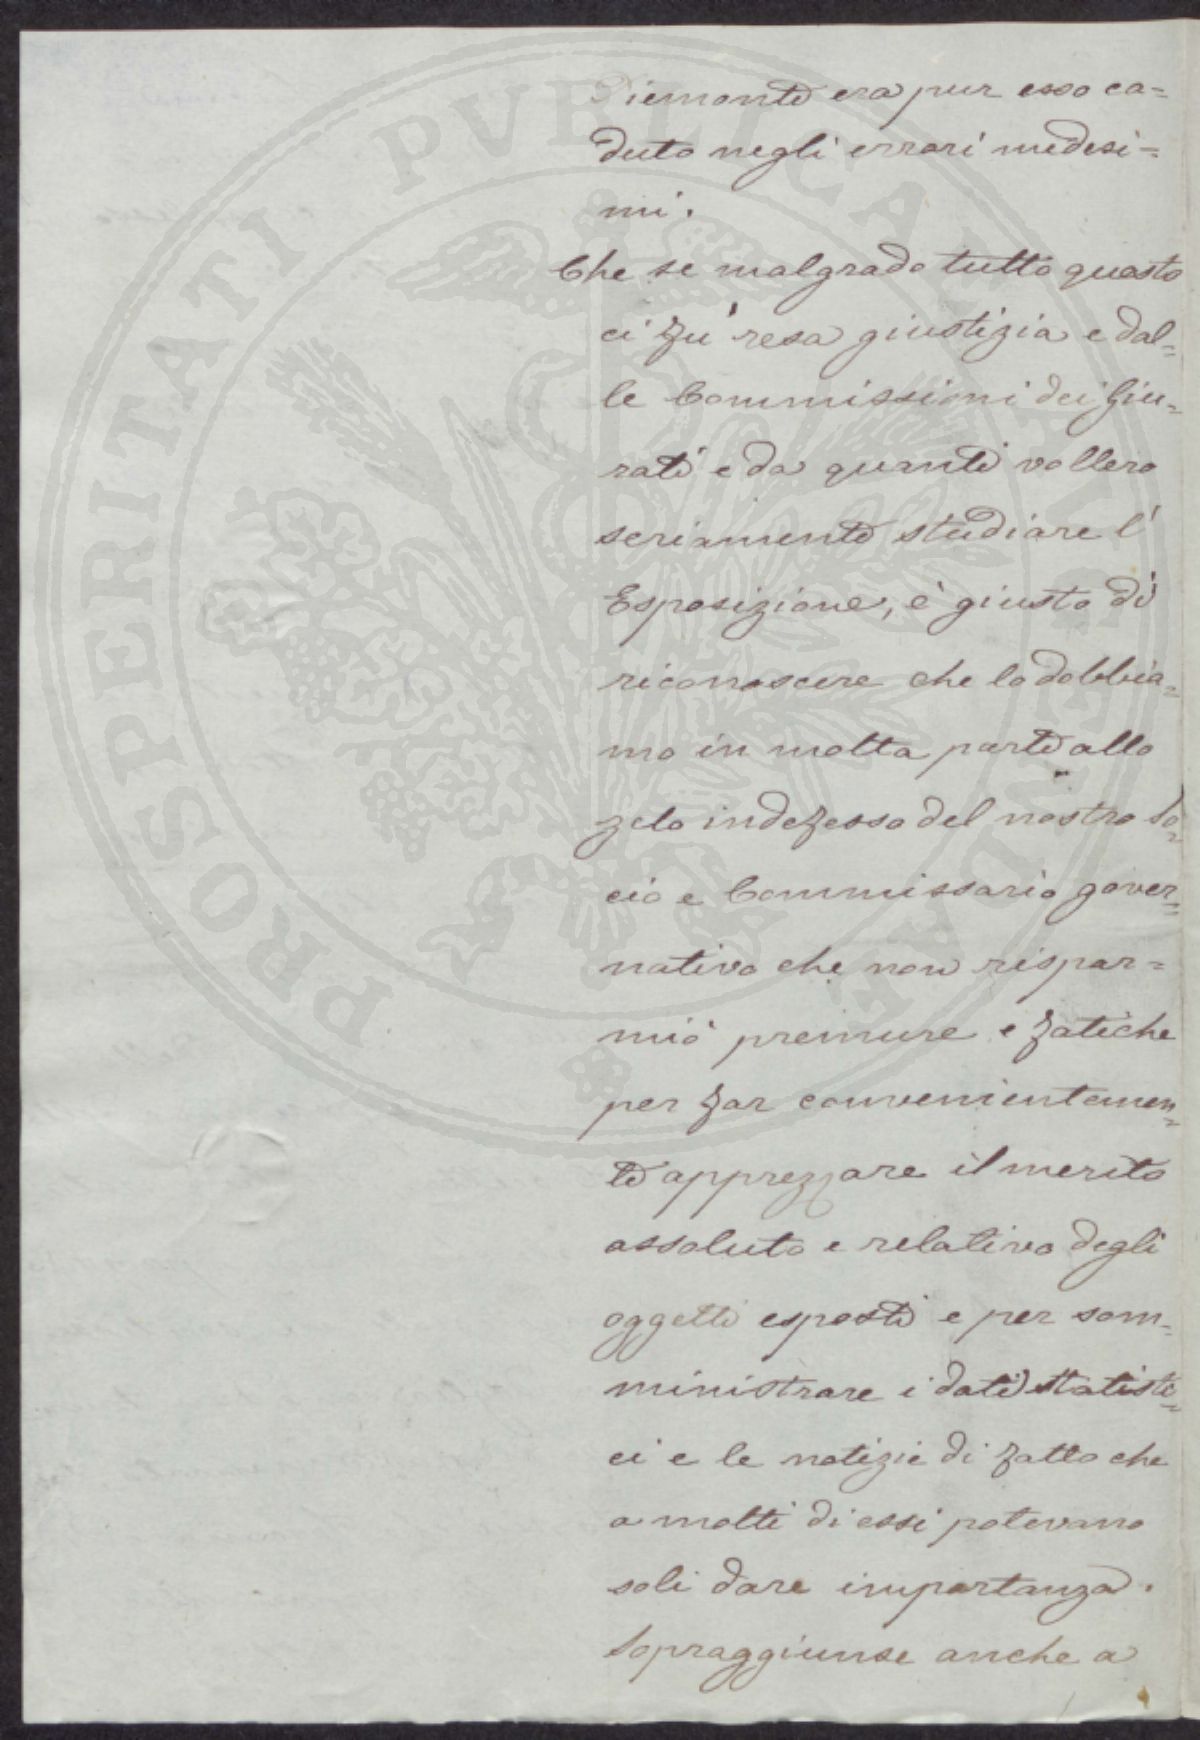 Piemonte era pur esso ca=
duto negli errori medesi=
mi.
Che se malgrado tutto questo
ci fu' resa giustizia e dal=
le Commissioni dei Giu=
rati e da quanti vollero
seriamente studiare l'
Esposizione, è giusto di
riconoscere che lo dobbia=
mo in molta parte allo
zelo indefesso del nostro So=
cio e Commissario gover=
nativo che non rispar=
miò premure e fatiche
per far convenientemen=
te apprezzare il merito
assoluto e relativo degli
oggetti esposti e per som=
ministrare i dati statisti=
ci e le notizie di fatto che
a molti di essi potevano
soli dare importanza.
Sopraggiunse anche a
PROSPERITATI PVBLICAE AVGENDAE